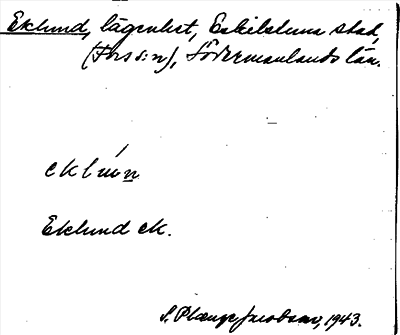 Eklund, lägenhet, Eskilstuna stad,
(Fors s:n), Södermanlands län.
eklún
Eklund ek.
S. Plænge Jacobson, 1943.